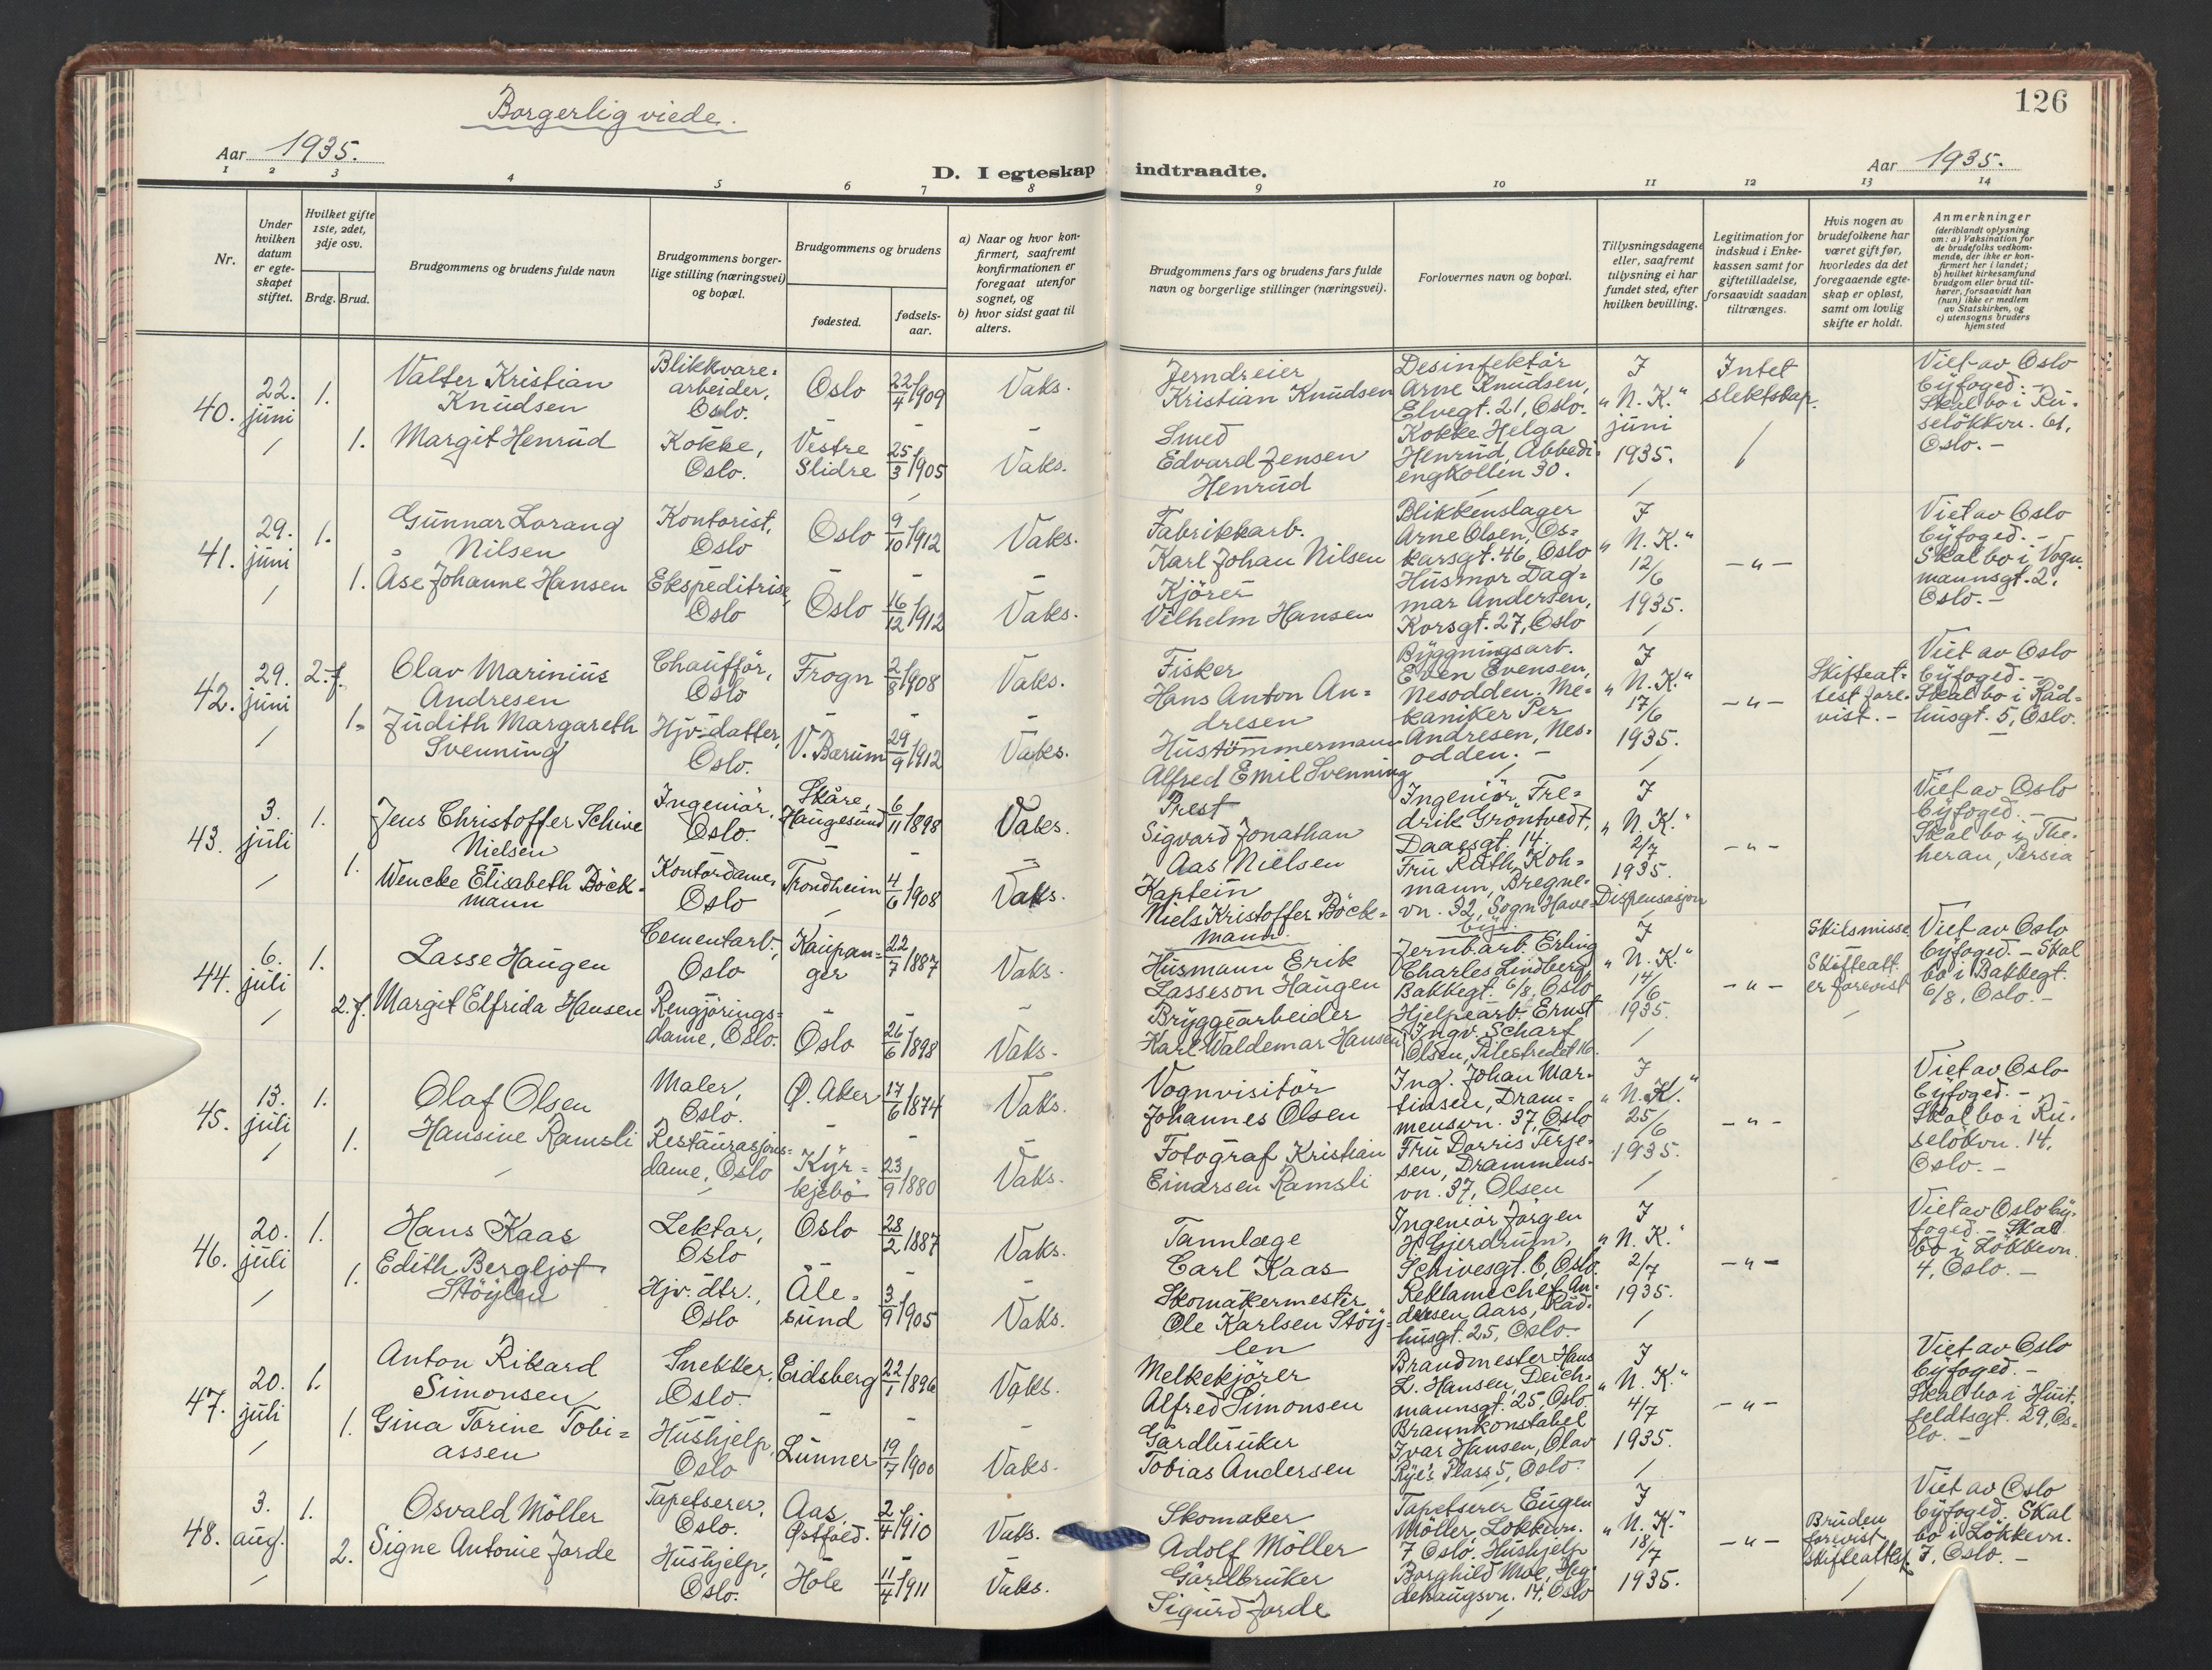 Borgerlig viede.
126
Aar 1935.
D. I egteskap indtraadte.
Aar 1935.
1 2 3 4 5 6 7 8 9 10 11 12 13 14
Nr.
Under
hvilken
datum
er egte-
skapet
stiftet.
Hvilket gifte
1ste, 2det,
3dje osv.
Brdg. Brud.
Brudgommens og brudens fulde navn
Brudgommens borger-
lige stilling (næringsvei)
og bopæl.
Brudgommens og brudens
fødested.
fødsels-
aar.
a) Naar og hvor kon-
firmert, saafremt
konfirmationen er
foregaat utenfor
sognet, og
b) hvor sidst gaat til
alters.
Brudgommens fars og brudens fars fulde
navn og borgerlige stillinger (næringsvei).
Forlovernes navn og bopæl.
Tillysningsdagene
eller, saafremt
tillysning ei har
fundet sted, efter
hvilken bevilling.
Legitimation for
indskud i Enke-
kassen samt for
giftetilladelse,
forsaavidt saadan
tiltrænges.
Hvis nogen av
brudefolkene har
været gift før,
hvorledes da det
foregaaende egte-
skap er opløst,
samt om lovlig
skifte er holdt.
Anmerkninger
(deriblandt oplysning
om: a) Vaksination for
de brudefolks vedkom-
mende, der ikke er kon-
firmert her i landet;
b) hvilket kirkesamfund
brudgom eller brud til-
hører, forsaavidt han
(hun) ikke er medlem
av Statskirken, og
c) utensogns bruders
hjemsted
40.
22.
juni
1.
Valter Kristian
Knudsen
Blikkvare-
arbeider,
Oslo.
Oslo
22/4 1909
Vaks.
1.
Margit Henrud
Kokke,
Oslo.
Vestre
Slidre
25/3 1905
Vaks.
Jerndreier
Kristian Knudsen
Smed
Edvard Jensen
Henrud
Desinfektör
Arne Knudsen,
Elvegt. 21, Oslo.
Kokke Helga
Henrud, Abbedi-
engkollen 30.
I
"N. K."
juni
1935.
Intet
slektskap.
Viet av Oslo
byfoged. -
Skal bo i Ru-
selökkvn. 61,
Oslo. -
41.
29.
juni
1.
Gunnar Lorang
Nilsen
Kontorist,
Oslo
Oslo
9/10 1912
Vaks.
1.
Åse Johanne Hansen
Ekspeditrise,
Oslo
Oslo
16/12 1912
Vaks.
Fabrikkarb.
Karl Johan Nilsen
Kjörer
Vilhelm Hansen
Blikkenslager
Arne Olsen, Os-
karsgt. 46, Oslo
Husmor Dag-
mar Andersen,
Korsgt. 27, Oslo
I
"N. K."
12/6
1935.
- " -
Viet av Oslo
byfoged. -
Skal bo i Vogn-
mannsgt. 2,
Oslo. -
42.
29.
juni
2. f.
Olav Marinius
Andresen
Chaufför,
Oslo
Frogn
2/8 1908
Vaks.
1.
Judith Margareth
Svenning
Hjv. datter,
Oslo.
V. Bærum
29/9 1912
Vaks.
Fisker
Hans Anton An-
dresen
Hustömmermann
Alfred Emil Svenning
Byggningsarb.
Even Evensen,
Nesodden. Me-
kaniker Per
Andresen, Nes-
odden. -
I
"N. K."
17/6
1935.
- " -
Skifteat-
test fore-
vist. -
Viet av Oslo
byfoged. -
Skal bo i Råd-
husgt. 5, Oslo.
43.
3.
juli
1.
Jens Christoffer Schive
Nielsen
Ingeniör,
Oslo.
Skåre,
Haugesund
6/11 1898
Vaks.
1.
Wencke Elisabeth Böck-
mann
Kontordame,
Oslo
Trondheim
4/6 1908
Vaks.
Prest
Sigvard Jonathan
Aas Nielsen
Kaptein
Niels Kristoffer Böck-
mann
Ingeniör Fre-
drik Gröntvedt,
Daaesgt. 14.
Fru Ruth Koh-
mann, Bregne-
vn. 32, Sogn Have-
by.
I
"N. K."
2/7
1935.
Dispensasjon
- " -
Viet av Oslo
byfoged. -
Skal bo i The-
heran, Persia
44.
6.
juli
1.
Lasse Haugen
Cementarb.,
Oslo
Kaupan-
ger
22/7 1887
Vaks.
2. f.
Margit Elfrida Hansen
Rengjörings-
dame, Oslo.
Oslo
26/6 1898
Vaks.
Husmann Erik
Lasseson Haugen
Bryggearbeider
Karl Waldemar Hansen
Jernbarb. Erling
Charles Lindberg
Bakkegt. 6/8, Oslo
Hjelpearb. Ernst
Ingv. Scharf
Olsen, Pilestredet 16.
I
"N. K."
14/6
1935.
- " -
Skilsmisse
Skifteatt.
er forevist
Viet av Oslo
byfoged. - Skal
bo i Bakkegt.
6/8, Oslo. -
45.
13.
juli
1.
Olaf Olsen
Maler,
Oslo.
Ø. Aker
17/6 1874
Vaks.
1.
Hansine Ramsli
Restaurasjons-
dame, Oslo
Kyr-
kjebö
23/9 1880
Vaks.
Vognvisitör
Johannes Olsen
Fotograf Kristian
Einarsen Ramsli
Ing. Johan Mar-
tinsen, Dram-
mensvn. 37, Oslo
Fru Dorris Terje-
sen, Drammens-
vn. 37, Olsen
I
"N. K."
25/6
1935.
- " -
Viet av Oslo
byfoged. -
Skal bo i Ru-
selökvn. 14,
Oslo. -
46.
20.
juli
1.
Hans Kaas
Lektor,
Oslo
Oslo
28/2 1887
Vaks.
1.
Edith Bergljot
Stöylen
Hjv. dtr.,
Oslo
Åle-
sund
3/9 1905
Vaks.
Tannlæge
Carl Kaas
Skomakermester
Ole Karlsen Stöy-
len
Ingeniör Jörgen
H. Gjerdrum,
Schivesgt. 6, Oslo.
Reklamechef An-
dersen Aars, Råd-
husgt. 25, Oslo.
I
"N. K."
2/7
1935.
- " -
Viet av Oslo by-
foged. - Skal
bo i Lökkevn.
4, Oslo. -
47.
20.
juli
1.
Anton Rikard
Simonsen
Snekker,
Oslo.
Eidsberg
22/1 1896
Vaks.
1.
Gina Torine Tobi-
assen
Hushjelp,
Oslo
Lunner
19/7 1900
Vaks.
Melkekjörer
Alfred Simonsen
Gardbruker
Tobias Andersen
Brandmester Hans
L. Hansen, Deich-
mannsgt. 25, Oslo.
Brannkonstabel
Ivar Hansen, Olav
Rye's Plass 5, Oslo.
I
"N. K."
4/7
1935.
- " -
Viet av Oslo
byfoged. -
Skal bo i Huit-
feldtsgt. 29, Os-
lo. -
48.
3.
aug.
1.
Osvald Möller
Tapetserer,
Oslo.
Aas,
Østfold.
2/4 1910
Vaks.
2.
Signe Antonie Jorde
Hushjelp,
Oslo.
Hole
11/4 1911
Vaks.
Skomaker
Adolf Möller
Gårdbruker
Sigurd Jorde
Tapetserer Eugen
Möller, Lökkevn.
7 Oslo. Hushjelp
Borghild Moe, Heg-
dehaugsvn. 14, Oslo
I
"N. K."
18/7
1935.
- " -
Bruden
forevist
skifteattest
Viet av Oslo
byfoged. Skal
bo i Lökkevn.
7, Oslo. -